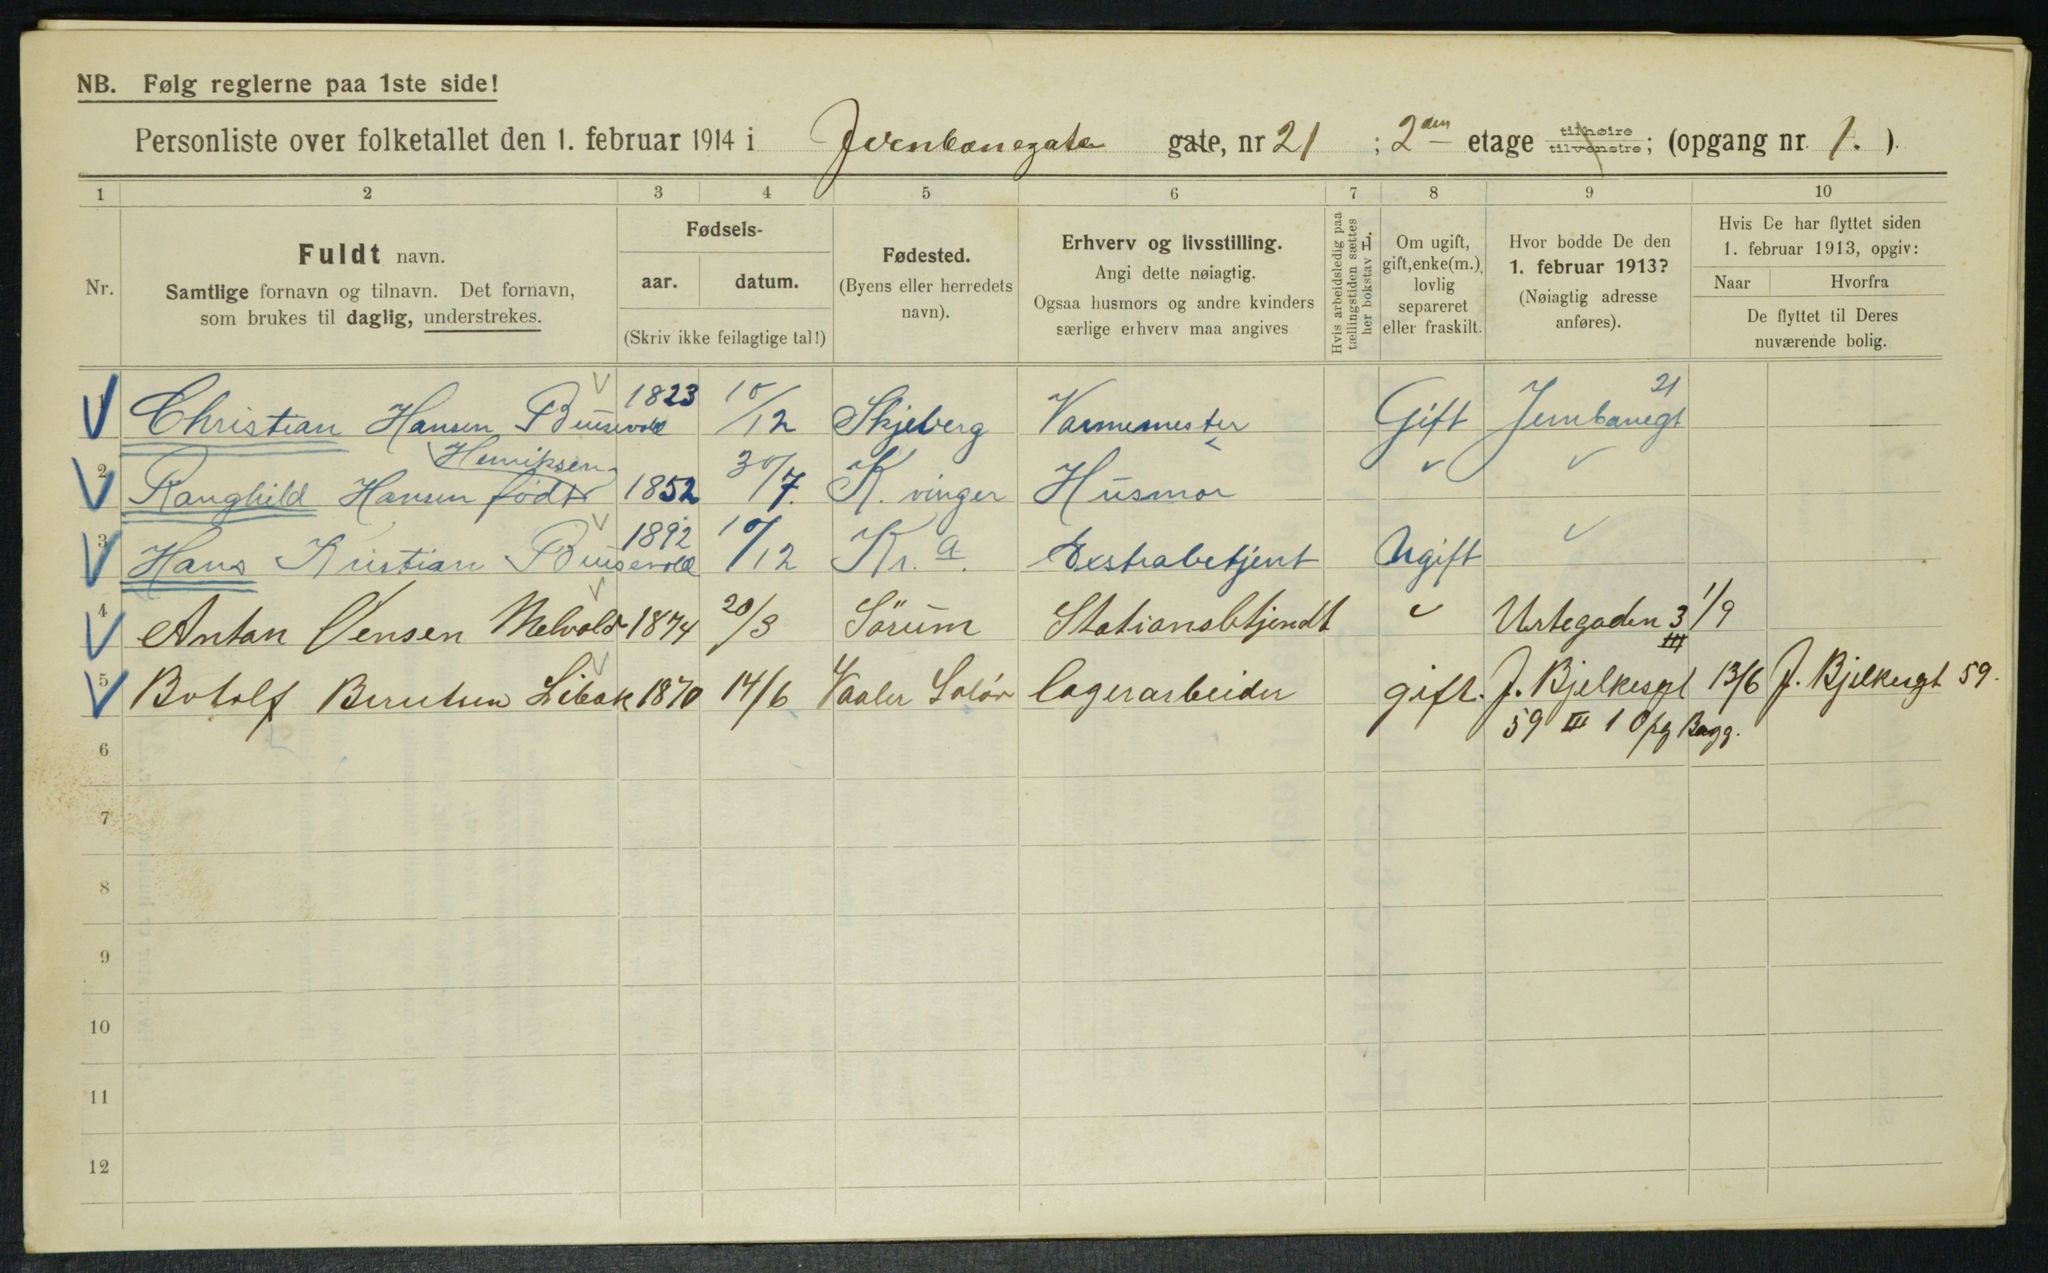 NB. Følg reglerne paa 1ste side!
Personliste over folketallet den 1. februar 1914 i Jernbanegaten gate, nr 21 ; 2den etage tilhøire tilvenstre; (opgang nr. 1. ).
1 2 3 4 5 6 7 8 9 10
Nr.
Fuldt navn.
Samtlige fornavn og tilnavn. Det fornavn,
som brukes til daglig, understrekes.
Fødsels-
aar. datum.
(Skriv ikke feilagtige tal!)
Fødested.
(Byens eller herredets
navn).
Erhverv og livsstilling.
Angi dette nøiagtig.
Ogsaa husmors og andre kvinders
særlige erhverv maa angives
Hvis arbeidsledig paa
tællingstiden sættes
her bokstav L.
Om ugift,
gift, enke(m.),
lovlig
separeret
eller fraskilt.
Hvor bodde De den
1. februar 1913?
(Nøiagtig adresse
anføres).
Hvis De har flyttet siden
1. februar 1913, opgiv:
Naar Hvorfra
De flyttet til Deres
nuværende bolig.
1 Christian Hansen 1823 10/12 Skjeberg Varmemester Gift Jernbanegt 21
Henriksen
2 Ranghild Hansen født 1852 30/7. K. vinger Husmor
3 Hans Kristian 1892 10/12 Kr. a. Extrabetjent Ugift
4 Antan Jensen Melvold 1874 20/3 Sørum Stationsbtjendt Urtegaden 3 III 1/9
5 Botolf Berntsen Libak 1870 14/6 Vaaler Solør lagerarbeider gift. J. Bjelkesgt 13/6 J. Bjelkesgt 59.
59 III 1 Opg Bagg.
6
7
8
9
10
11
12